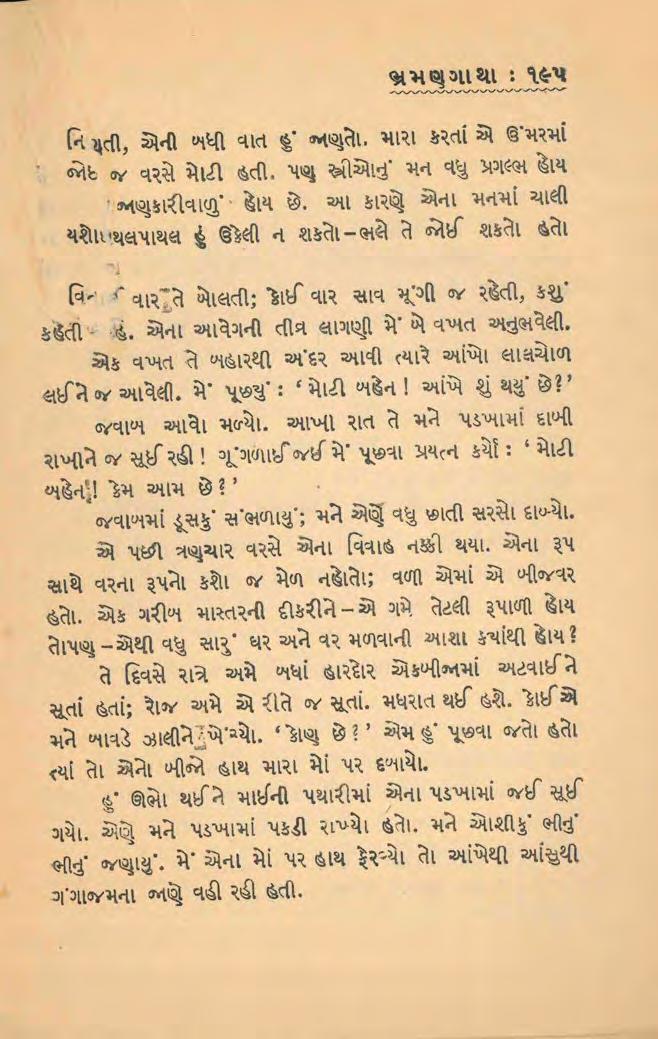 ભ્રમણગાથા : ૧૯૫
નિયતી, એની બધી વાત હું જાણતો. મારા કરતાં એ ઉંમરમાં
જ વરસે મોટી હતી. પણ સ્ત્રીઓનું મન વધુ પ્રગલ્ભ હોય
જાણકારીવાળું હોય છે. આ કારણે એના મનમાં ચાલી
હું ઉકેલી ન શકતો–ભલે તે જોઈ શકતો હતો
વાર તે બોલતી; કોઈ વાર સાવ મૂંગી જ રહેતી, કશું
કહેતી એના આવેગની તીવ્ર લાગણી મેં બે વખત અનુભવેલી.
એક વખત તે બહારથી અંદર આવી ત્યારે આંખો લાલચોળ
લઈને જ આવેલી. મેં પૂછયું : ‘મોટી બહેન! આંખે શું થયું છે?’
જવાબ આવો મળ્યો. આખી રાત તે મને પડખામાં દાબી
રાખીને જ સૂઈ રહી! ગૂંગળાઈ જઈ મેં પૂછવા પ્રયત્ન કર્યો : ‘મોટી
બહેન! કેમ આમ છે?’
જવાબમાં ડૂસકું સંભળાયું; મને એણે વધુ છાતી સરસો દાબ્યો.
એ પછી ત્રણચાર વરસે એના વિવાહ નક્કી થયા. એના રૂપ
સાથે વરના રૂપનો કશો જ મેળ નહોતો; વળી એમાં એ બીજવર
હતો. એક ગરીબ માસ્તરની દીકરીને–એ ગમે તેટલી રૂપાળી હોય
તોપણ–એથી વધુ સારું ઘર અને વર મળવાની આશા કયાંથી હોય?
તે દિવસે રાત્રે અમે બધાં હારદોર એકબીજામાં અટવાઈને
સૂતાં હતાં; રોજ અમે એ રીતે જ સૂતાં. મધરાત થઈ હશે. કોઈએ
મને બાવડે ઝાલીને ખેંચ્યો. ‘કોણ છે?’ એમ હું પૂછવા જતો હતો
ત્યાં તો એનો બીજો હાથ મારા મોં પર દબાયો.
હું ઊભો થઈને માઈની પથારીમાં એના પડખામાં જઈ સૂઈ
ગયો. એણે મને પડખામાં પકડી રાખ્યો હતો. મને ઓશીકું ભીનું
ભીનું જણાયું. મેં એના મોં પર હાથ ફેરવ્યો તો આંખેથી આંસુથી
ગંગાજમના જાણે વહી રહી હતી.